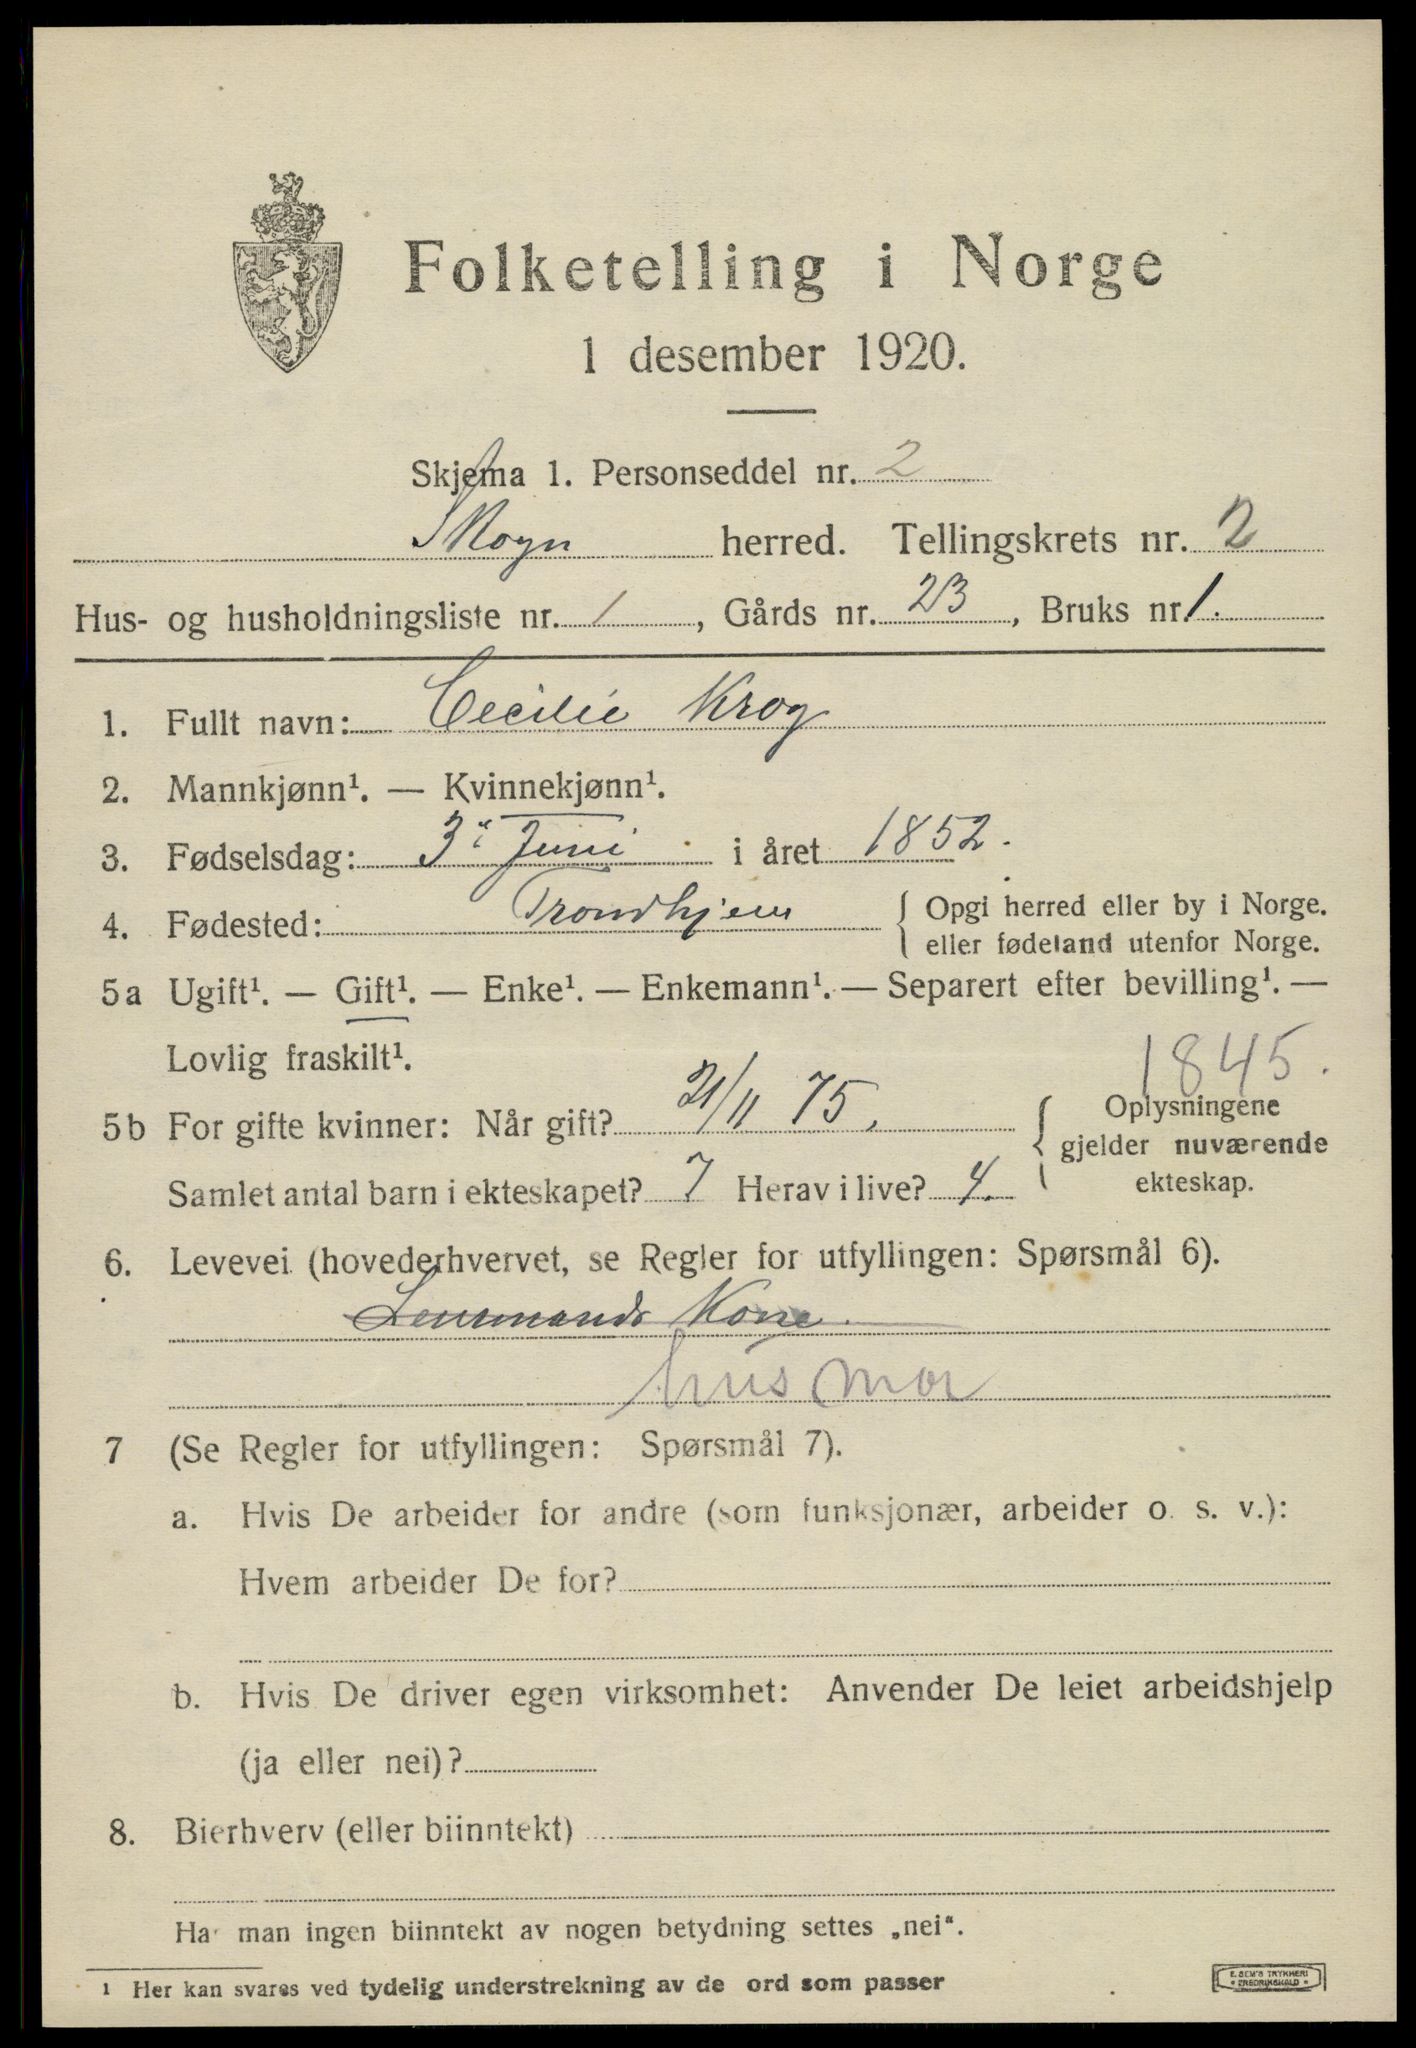 Folketelling i Norge
1 desember 1920.
Skjema 1. Personseddel nr. 2
Skogn herred. Tellingskrets nr. 2
Hus- og husholdningsliste nr. 1, Gårds nr. 23, Bruks nr. 1.
1. Fullt navn: Cecilie Krog
2. Mannkjønn¹. — Kvinnekjønn¹.
3. Fødselsdag: 3' Juni i året 1852.
4. Fødested: Trondhjem { Opgi herred eller by i Norge.
eller fødeland utenfor Norge.
5a Ugift¹. — Gift¹. — Enke¹. — Enkemann¹. — Separert efter bevilling¹. —
Lovlig fraskilt¹.
1845.
5b For gifte kvinner: Når gift? 21/11 75. { Oplysningene
gjelder nuværende
Samlet antal barn i ekteskapet? 7 Herav i live? 4. ekteskap.
6. Levevei (hovederhvervet, se Regler for utfyllingen: Spørsmål 6).
Lensmands Kone.
husmor
7 (Se Regler for utfyllingen: Spørsmål 7).
a. Hvis De arbeider for andre (som funksjonær, arbeider o. s. v.):
Hvem arbeider De for?
b. Hvis De driver egen virksomhet: Anvender De leiet arbeidshjelp
(ja eller nei)?
8. Bierhverv (eller biinntekt)
Har man ingen biinntekt av nogen betydning settes „nei“.
1 Her kan svares ved tydelig understrekning av de ord som passer
E. SEM'S TRYKKERI
FREDRIKSHALD